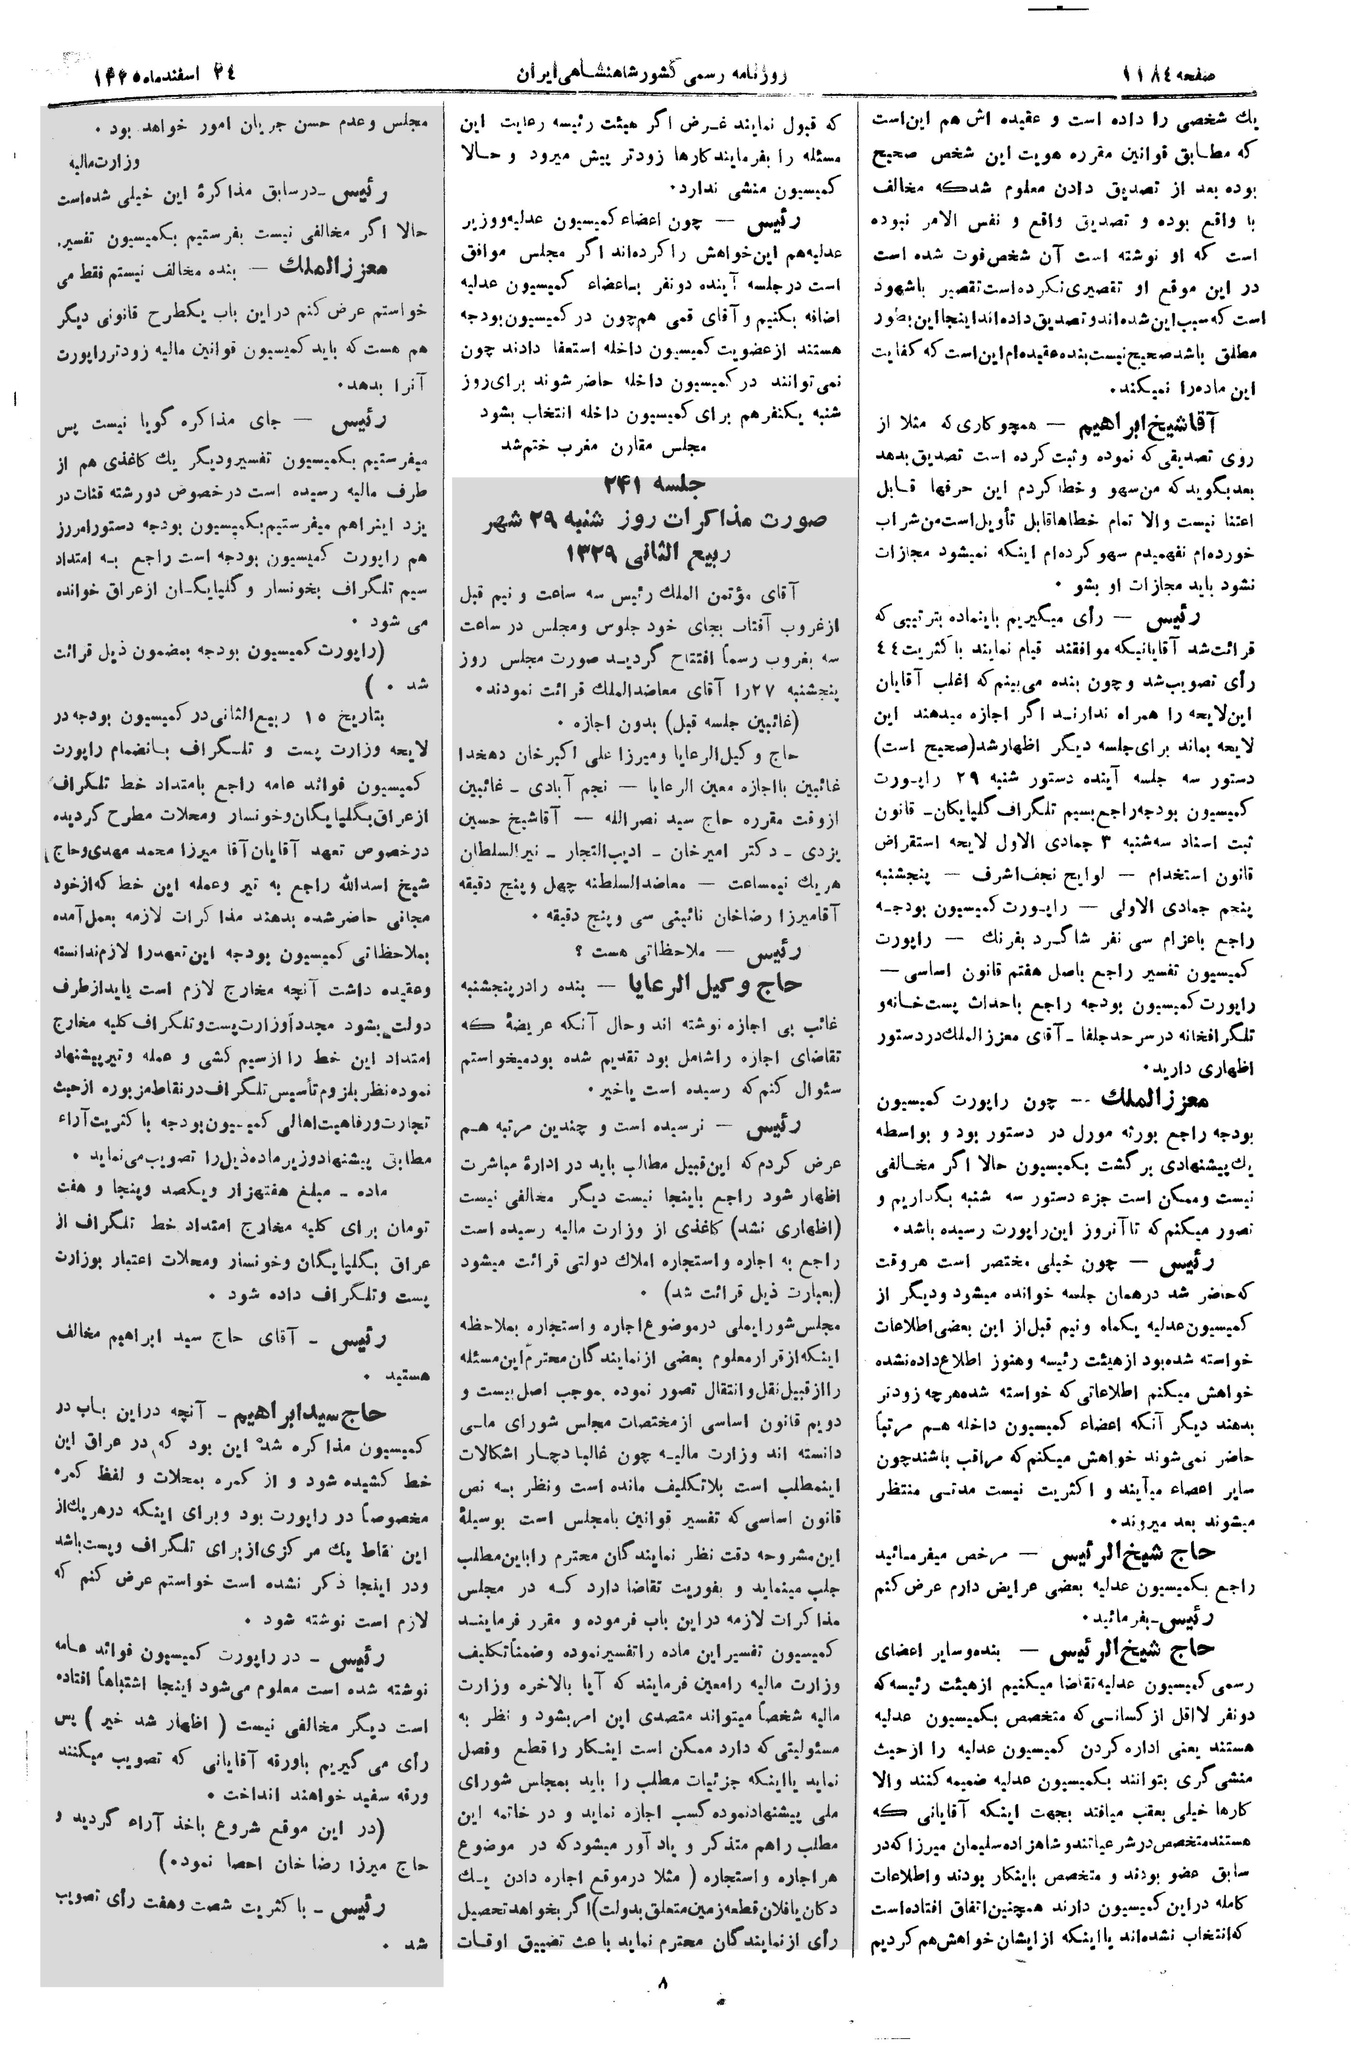 صفحه ۱۱۸۴
روزنامه رسمی کشور شاهنشاهی ایران
۲۴ اسفند ماه ۱۳۲۵
یك شخصی را داده است و عقیده اش هم این است
که مطابق قوانین مقرره هویت این شخص صحیح
بوده بعد از تصدیق دادن معلوم شد که مخالف
با واقع بوده و تصدیق واقع و نفس الامر نبوده
است که او نوشته است آن شخص فوت شده است
در این موقع او تقصیری نکرده است تقصیر با شهود
است که سبب این شده اند و تصدیق داده اند اینجا این بطور
مطلق باشد صحیح نیست بنده عقیده ام این است که کفایت
این ماده را نمیکند.
آقا شیخ ابراهیم — همچو کاری که مثلا از
روی تصدیقی که نموده و ثبت کرده است تصدیق بدهد
بعد بگوید که من سهو و خطا کردم این حرفها قابل
اعتنا نیست والا تمام خطاها قابل تأویل است من شراب
خورده ام نفهمیدم سهو کرده ام اینکه نمیشود مجازات
نشود باید مجازات او بشو .
رئیس — رأی میگیریم باینماده بترتیبی که
قرائت شد آقایانیکه موافقند قیام نمایند باکثریت ۴۴
رأی تصویب شد و چون بنده می بینم که اغلب آقایان
این لایحه را همراه ندارند اگر اجازه میدهند این
لایحه بماند برای جلسه دیگر اظهار شد (صحیح است)
دستور سه جلسه آینده دستور شنبه ۲۹ راپورت
کمیسیون بودجه راجع بسیم تلگراف گلپایگان - قانون
ثبت اسناد سه شنبه ۳ جمادی الاول لایحه استقراض
قانون استخدام — لوایح نجف اشرف — پنجشنبه
پنجم جمادی الاولی — راپورت کمیسیون بودجه
راجع باعزام سی نفر شاگرد بفرنك — راپورت
کمیسیون تفسیر راجع باصل هفتم قانون اساسی —
راپورت کمیسیون بودجه راجع باحداث پست خانه و
تلگرافخانه در سرحد جلفا - آقای معززالملك در دستور
اظهاری دارید.
معززالملك — چون راپورت کمیسیون
بودجه راجع بورثه مورل در دستور بود و بواسطه
یك پیشنهادی برگشت بکمیسیون حالا اگر مخالفی
نیست و ممکن است جزء دستور سه شنبه بگذاریم و
تصور میکنم که تا آنروز این راپورت رسیده باشد.
رئیس — چون خیلی مختصر است هر وقت
که حاضر شد در همان جلسه خوانده میشود و دیگر از
کمیسیون عدلیه یکماه و نیم قبل از این بعضی اطلاعات
خواسته شده بود از هیئت رئیسه و هنوز اطلاع داده نشده
خواهش میکنم اطلاعاتی که خواسته شده هرچه زودتر
بدهند دیگر آنکه اعضاء کمیسیون داخله هم مرتباً
حاضر نمی شوند خواهش میکنم که مراقب باشند چون
سایر اعضاء میآیند و اکثریت نیست مدتی منتظر
میشوند بعد میروند.
حاج شیخ الرئیس — مرخص میفرمائید
راجع بکمیسیون عدلیه بعضی عرایض دارم عرض کنم
رئیس - بفرمائید.
حاج شیخ الرئیس — بنده و سایر اعضای
رسمی کمیسیون عدلیه تقاضا میکنیم از هیئت رئیسه که
دو نفر لااقل از کسانی که متخصص بکمیسیون عدلیه
هستند یعنی اداره کردن کمیسیون عدلیه را از حیث
منشی گری بتوانند بکمیسیون عدلیه ضمیمه کنند والا
کارها خیلی بعقب میافتد بجهت اینکه آقایانی که
هستند متخصص در شرعیاتند و شاهزاده سلیمان میرزا که در
سابق عضو بودند و متخصص باینکار بودند و اطلاعات
کامله در این کمیسیون دارند همچنین اتفاق افتاده است
که انتخاب نشده اند یا اینکه از ایشان خواهش هم کردیم
که قبول نمایند غرض اگر هیئت رئیسه رعایت این
مسئله را بفرمایند کارها زودتر پیش میرود و حالا
کمیسیون منشی ندارد.
رئیس — چون اعضاء کمیسیون عدلیه و وزیر
عدلیه هم این خواهش را کرده اند اگر مجلس موافق
است در جلسه آینده دو نفر باعضاء کمیسیون عدلیه
اضافه بکنیم و آقای قمی هم چون در کمیسیون بودجه
هستند از عضویت کمیسیون داخله استعفا دادند چون
نمی توانند در کمیسیون داخله حاضر شوند برای روز
شنبه یکنفر هم برای کمیسیون داخله انتخاب بشود
مجلس مقارن مغرب ختم شد
جلسه ۲۴۱
صورت مذاکرات روز شنبه ۲۹ شهر
ربیع الثانی ۱۳۲۹
آقای مؤتمن الملك رئیس سه ساعت و نیم قبل
از غروب آفتاب بجای خود جلوس و مجلس در ساعت
سه بغروب رسماً افتتاح گردید صورت مجلس روز
پنجشنبه ۲۷ را آقای معاضدالملك قرائت نمودند.
(غائبین جلسه قبل) بدون اجازه .
حاج وکیل الرعایا و میرزا علی اکبرخان دهخدا
غائبین با اجازه معین الرعایا — نجم آبادی - غائبین
از وقت مقرره حاج سید نصرالله — آقا شیخ حسین
یزدی - دکتر امیرخان - ادیب التجار - نیرالسلطان
هریك نیمساعت — معاضدالسلطنه چهل و پنج دقیقه
آقامیرزا رضاخان نائینی سی و پنج دقیقه .
رئیس — ملاحظاتی هست ؟
حاج وکیل الرعایا — بنده را در پنجشنبه
غائب بی اجازه نوشته اند و حال آنکه عریضهٔ که
تقاضای اجازه را شامل بود تقدیم شده بود میخواستم
سئوال کنم که رسیده است یا خیر.
رئیس — نرسیده است و چندین مرتبه هم
عرض کردم که این قبیل مطالب باید در ادارهٔ مباشرت
اظهار شود راجع باینجا نیست دیگر مخالفی نیست
(اظهاری نشد) کاغذی از وزارت مالیه رسیده است
راجع به اجاره و استجاره املاك دولتی قرائت میشود
(بعبارت ذیل قرائت شد) .
مجلس شورایملی در موضوع اجاره و استجاره بملاحظه
اینکه از قرار معلوم بعضی از نمایندگان محترم این مسئله
را از قبیل نقل و انتقال تصور نموده بموجب اصل بیست و
دویم قانون اساسی از مختصات مجلس شورای ملی
دانسته اند وزارت مالیه چون غالبا دچار اشکالات
اینمطلب است بلاتکلیف مانده است و نظر به نص
قانون اساسی که تفسیر قوانین با مجلس است بوسیلهٔ
این مشروحه دقت نظر نمایندگان محترم را باین مطلب
جلب مینماید و بفوریت تقاضا دارد که در مجلس
مذاکرات لازمه در این باب فرموده و مقرر فرمایند
کمیسیون تفسیر این ماده را تفسیر نموده و ضمناً تکلیف
وزارت مالیه را معین فرمایند که آیا بالاخره وزارت
مالیه شخصاً میتواند متصدی این امر بشود و نظر به
مسئولیتی که دارد ممکن است اینکار را قطع و فصل
نماید یا اینکه جزئیات مطلب را باید بمجلس شورای
ملی پیشنهاد نموده کسب اجازه نماید و در خاتمه این
مطلب را هم متذکر و یاد آور میشود که در موضوع
هر اجاره و استجاره ( مثلا در موقع اجاره دادن یك
دکان یا فلان قطعه زمین متعلق بدولت) اگر بخواهد تحصیل
رأی از نمایندگان محترم نماید باعث تضییق اوقات
مجلس و عدم حسن جریان امور خواهد بود .
وزارت مالیه
رئیس - در سابق مذاکرهٔ این خیلی شده است
حالا اگر مخالفی نیست بفرستیم بکمیسیون تفسیر.
معززالملك — بنده مخالف نیستم فقط می
خواستم عرض کنم در این باب یکطرح قانونی دیگر
هم هست که باید کمیسیون قوانین مالیه زودتر راپورت
آنرا بدهد.
رئیس — جای مذاکره گویا نیست پس
میفرستیم بکمیسیون تفسیر و دیگر یك کاغذی هم از
طرف مالیه رسیده است در خصوص دو رشته قنات در
یزد اینرا هم میفرستیم بکمیسیون بودجه دستور امروز
هم راپورت کمیسیون بودجه است راجع به امتداد
سیم تلگراف بخونسار و گلپایگان از عراق خوانده
می شود .
(راپورت کمیسیون بودجه بمضمون ذیل قرائت
شد . )
بتاریخ ۱۵ ربیع الثانی در کمیسیون بودجه در
لایحه وزارت پست و تلگراف بانضمام راپورت
کمیسیون فوائد عامه راجع بامتداد خط تلگراف
از عراق بگلپایگان و خونسار و محلات مطرح گردیده
در خصوص تعهد آقایان آقا میرزا محمد مهدی و حاج
شیخ اسدالله راجع به تیر و عمله این خط که از خود
مجانی حاضر شده بدهند مذاکرات لازمه بعمل آمده
بملاحظاتی کمیسیون بودجه این تعهد را لازم ندانسته
و عقیده داشت آنچه مخارج لازم است باید از طرف
دولت بشود مجدداً وزارت پست و تلگراف کلیه مخارج
امتداد این خط را از سیم کشی و عمله و تیر پیشنهاد
نموده نظر بلزوم تأسیس تلگراف در نقاط مزبوره از حیث
تجارت و رفاهیت اهالی کمیسیون بودجه باکثریت آراء
مطابق پیشنهاد وزیر ماده ذیل را تصویب می نماید .
ماده - مبلغ هفتهزار و یکصد و پنجا و هفت
تومان برای کلیه مخارج امتداد خط تلگراف از
عراق بگلپایگان و خونسار و محلات اعتبار بوزارت
پست و تلگراف داده شود .
رئیس - آقای حاج سید ابراهیم مخالف
هستید .
حاج سید ابراهیم - آنچه در این باب در
کمیسیون مذاکره شد این بود که در عراق این
خط کشیده شود و از کمره بمحلات و لفظ کمره
مخصوصاً در راپورت بود و برای اینکه در هریك از
این نقاط یك مرکزی از برای تلگراف و پست باشد
و در اینجا ذکر نشده است خواستم عرض کنم که
لازم است نوشته شود .
رئیس - در راپورت کمیسیون فوائد عامه
نوشته شده است معلوم می شود اینجا اشتباهاً افتاده
است دیگر مخالفی نیست ( اظهار شد خیر ) پس
رأی می گیریم باورقه آقایانی که تصویب میکنند
ورقه سفید خواهند انداخت .
(در این موقع شروع باخذ آراء گردید و
حاج میرزا رضا خان احصا نمود.)
رئیس - باکثریت شصت و هفت رأی تصویب
شد .
۸